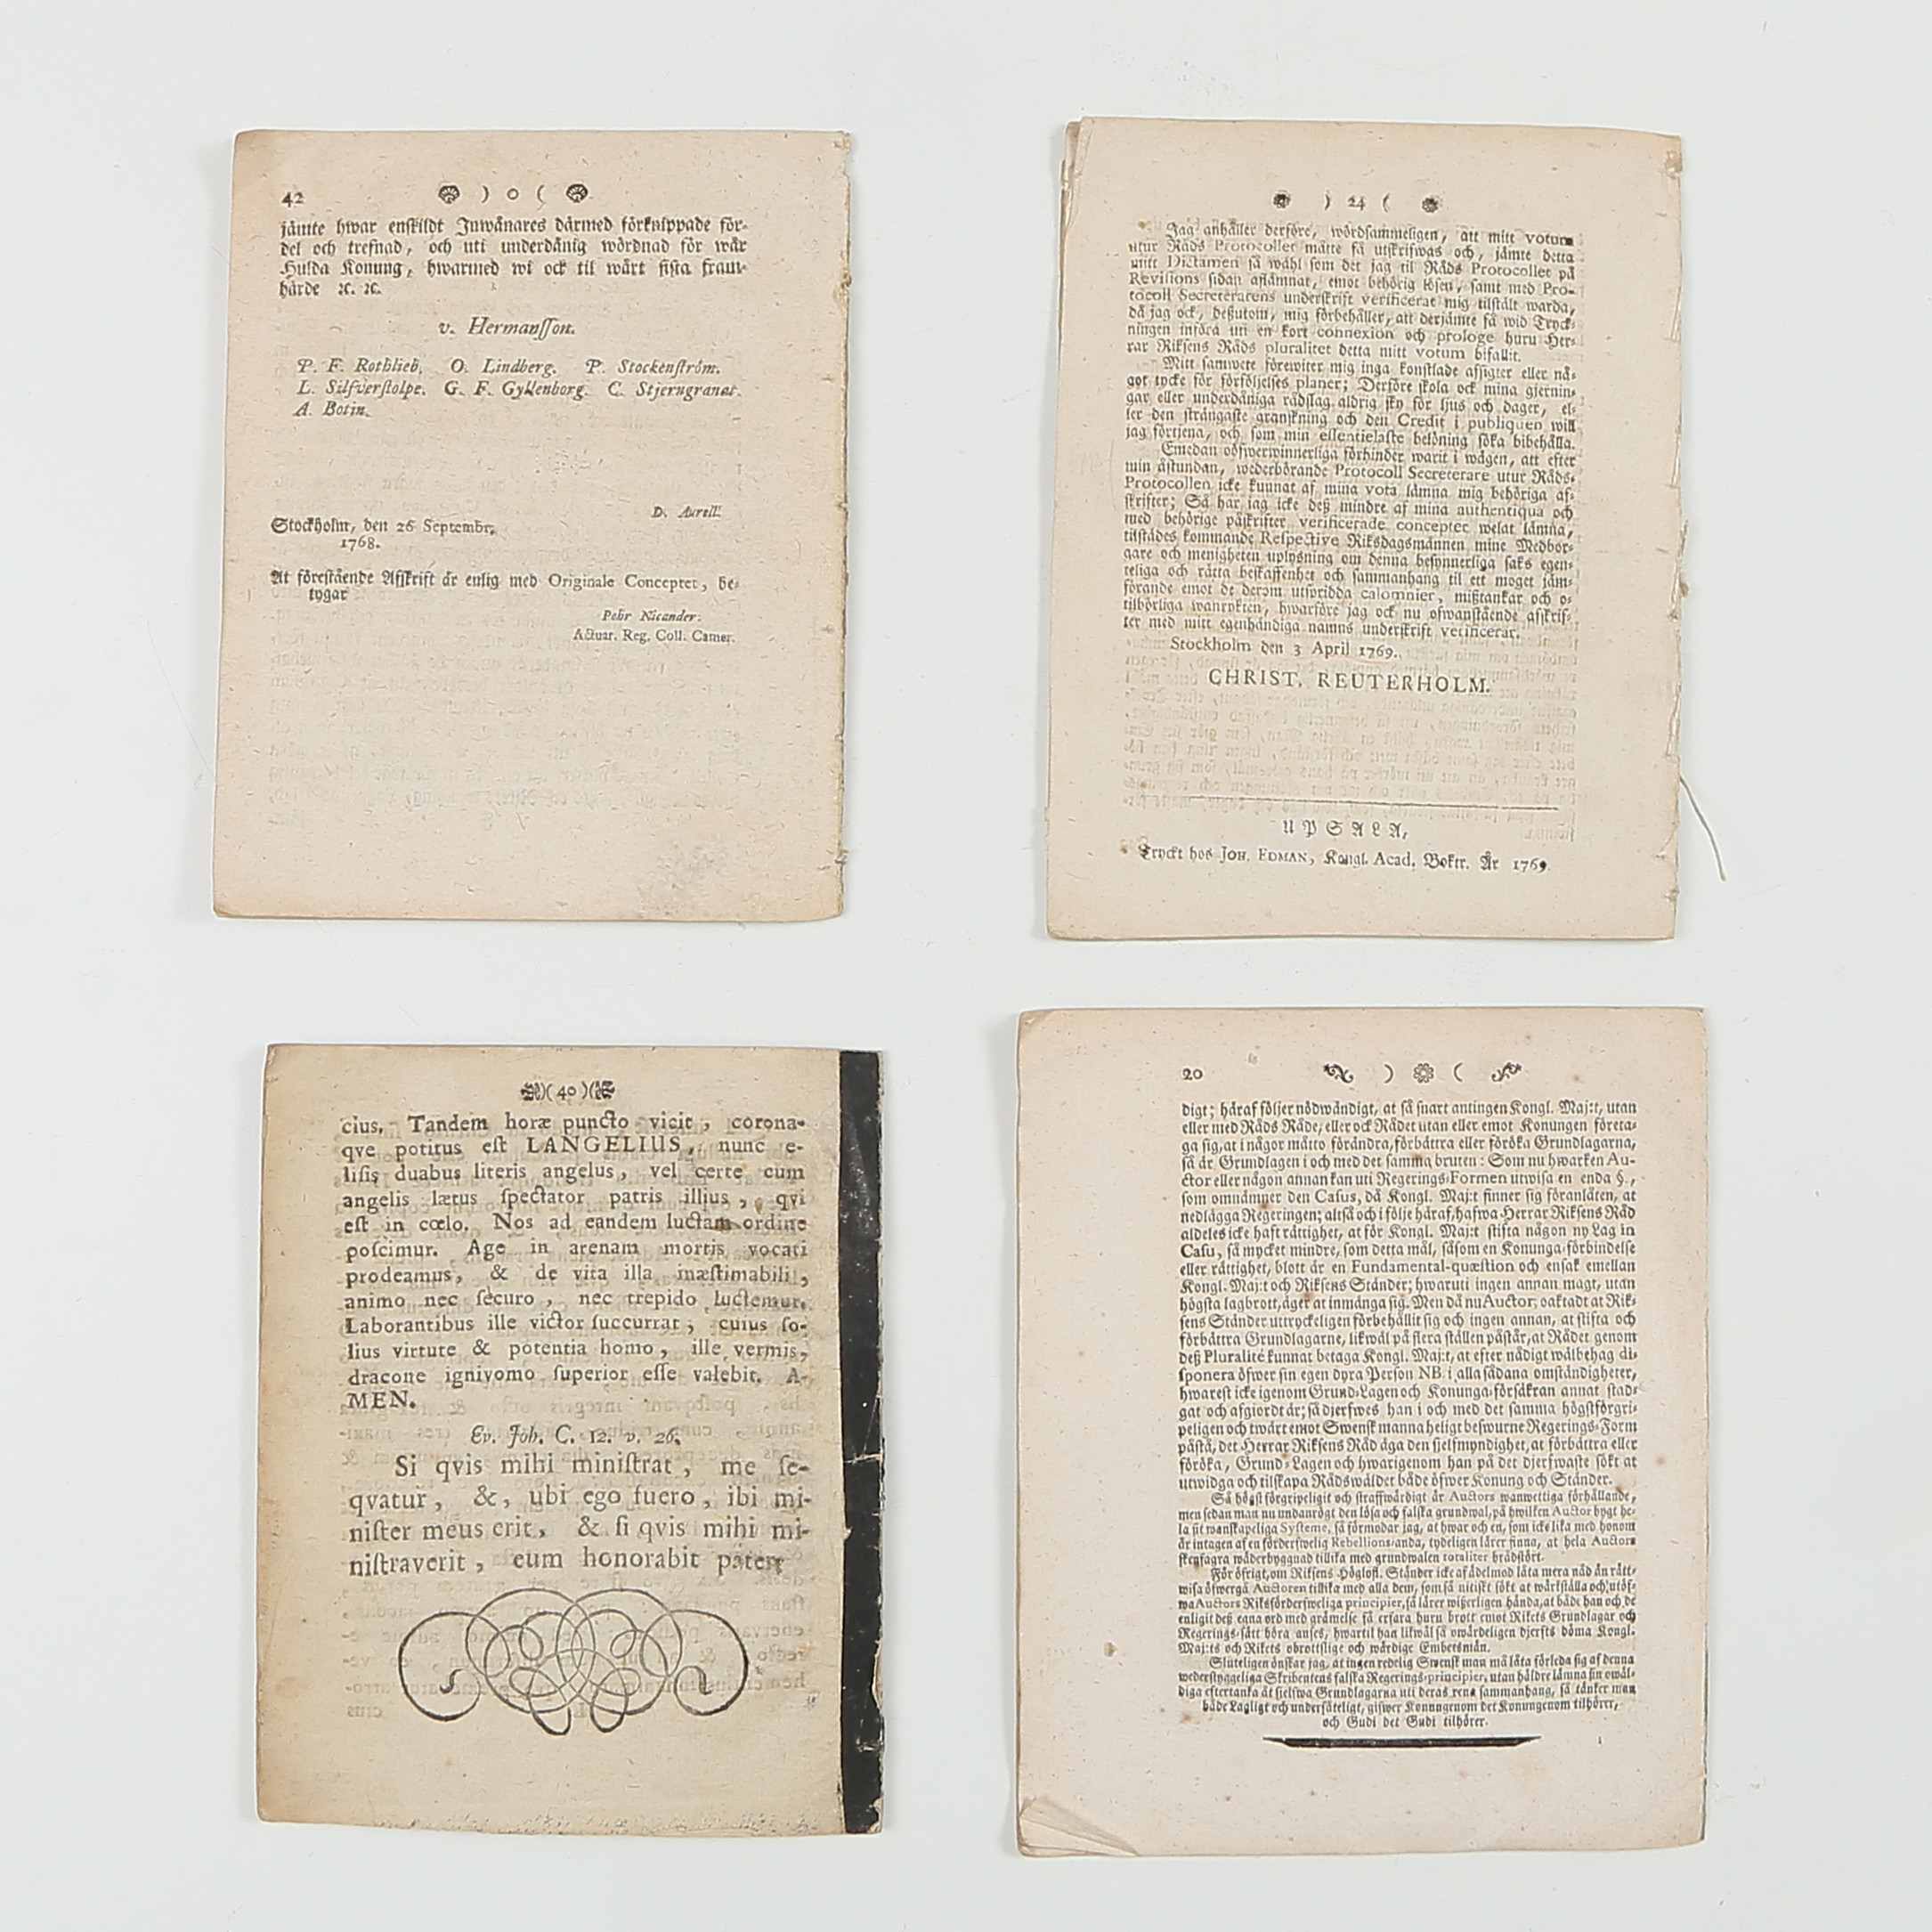 42 ) o (
jämte hwar enskildt Inwånares därmed förknippade för-
del och trefnad, och uti underdånig wördnad för wår
Hulda Konung, hwarmed wi ock til wårt sista fram-
härde ꝛc. ꝛc.
v. Hermansson.
P. F. Rothlieb. O. Lindberg. P. Stockenström.
L. Silfverstolpe. G. F. Gyllenborg. C. Stjerngranat.
A. Botin.
D. Aurell.
Stockholm, den 26 Septembr.
1768.
At förestående Afskrift är enlig med Originale Conceptet, be-
tygar
Pehr Nicander.
Actuar. Reg. Coll. Camer.
) 24 (
Jag anhåller derföre, wördsammeligen, att mitt votum
utur Råds Protocollet måtte få utskrifwas och, jämte detta
mitt Dictamen så wähl som det jag til Råds Protocollet på
Revisions sidan aflämnat, emot behörig lösen, samt med Pro-
tocoll Secreterarens underskrift verificerat mig tilstält warda,
då jag ock, dessutom, mig förbehåller, att derjämte få wid Tryck-
ningen införa uti en kort connexion och prologe huru Her-
rar Riksens Råds pluralitet detta mitt votum bifallit.
Mitt samwete förewiter mig inga konstlade afsigter eller nå-
got tycke för förföljelses planer; Derföre skola ock mina gjernin-
gar eller underdåniga rådslag aldrig sky för ljus och dager, el-
ler den strängaste granskning och den Credit i publiquen will
jag förtjena, och som min essentielaste belöning söka bibehålla.
Emedan oöfwerwinnerliga förhinder warit i wägen, att efter
min åstundan, wederbörande Protocoll Secreterare utur Råds-
Protocollen icke kunnat af mina vota lämna mig behöriga af-
skrifter; Så har jag icke dess mindre af mina authentiqua och
med behörige påskrifter verificerade concepter welat lämna,
tilstädes kommande Respective Riksdagsmännen mine Medbor-
gare och menigheten uplysning om denna besynnerliga saks egen-
teliga och rätta beskaffenhet och sammanhang til ett moget jäm-
förande emot de derom utspridda calomnier, misstankar och o-
tilbörliga wanrykten, hwarföre jag ock nu ofwanstående afskrif-
ter med mitt egenhändiga namns underskrift verificerar.
Stockholm den 3 April 1769.
CHRIST. REUTERHOLM.
UPSALA,
Tryckt hos JOH. EDMAN, Kongl. Acad. Boktr. År 1769
)( 40 )(
cius. Tandem horæ puncto vicit, corona-
qve potitus est LANGELIUS, nunc e-
lisis duabus literis angelus, vel certe cum
angelis lætus spectator patris illius, qvi
est in cœlo. Nos ad eandem luctam ordine
poscimur. Age in arenam mortis vocati
prodeamus, & de vita illa inæstimabili,
animo nec securo, nec trepido luctemur.
Laborantibus ille victor succurrat, cuius so-
lius virtute & potentia homo, ille vermis,
dracone ignivomo superior esse valebit. A-
MEN.
Ev. Joh. C. 12. v. 26.
Si qvis mihi ministrat, me se-
qvatur, &, ubi ego fuero, ibi mi-
nister meus erit, & si qvis mihi mi-
nistraverit, eum honorabit pater
20 ) (
digt; häraf följer nödwändigt, at så snart antingen Kongl. Maj:t, utan
eller med Råds Råde, eller ock Rådet utan eller emot Konungen företa-
ga sig, at i någor måtto förändra, förbättra eller föröka Grundlagarna,
så är Grundlagen i och med det samma bruten: Som nu hwarken Au-
ctor eller någon annan kan uti Regerings-Formen utwisa en enda §.,
som omnämner den Casus, då Kongl. Maj:t finner sig föranlåten, at
nedlägga Regeringen; altså och i följe häraf, hafwa Herrar Riksens Råd
aldeles icke haft rättighet, at för Kongl. Maj:t stifta någon ny Lag in
Casu, så mycket mindre, som detta mål, såsom en Konunga-förbindelse
eller rättighet, blott är en Fundamental-quæstion och ensak emellan
Kongl. Maj:t och Riksens Ständer; hwaruti ingen annan magt, utan
högsta lagbrott, äger at inmänga sig. Men då nu Auctor, oaktadt at Rik-
sens Ständer uttryckeligen förbehållit sig och ingen annan, at stifta och
förbättra Grundlagarne, likwäl på flera ställen påstår, at Rådet genom
dess Pluralité kunnat betaga Kongl. Maj:t, at efter nådigt wälbehag di-
sponera öfwer sin egen dyra Person NB. i alla sådana omständigheter,
hwarest icke igenom Grund-Lagen och Konunga-försäkran annat stad-
gat och afgiordt är; så djerfwes han i och med det samma högstförgri-
peligen och twärt emot Swensk manna heligt beswurne Regerings-Form
påstå, det Herrar Riksens Råd äga den sielfmyndighet, at förbättra eller
föröka, Grund-Lagen och hwarigenom han på det djerfwaste sökt at
utwidga och tilskapa Rådswäldet både öfwer Konung och Ständer.
Så högst förgripeligit och straffwärdigt är Auctors wanwettiga förhållande,
men sedan man nu undanrögt den lösa och falska grundwal, på hwilken Auctor bygt he-
la sit wanskapeliga Systeme, så förmodar jag, at hwar och en, som icke lika med honom
är intagen af en förderfwelig Rebellions-anda, tydeligen lärer finna, at hela Auctors
skenfagra wäderbyggnad tillika med grundwalen totaliter brådstört.
För öfrigt, om Riksens Höglofl. Ständer icke af ädelmod låta mera nåd än rätt-
wisa öfwergå Auctoren tillika med alla dem, som så nitiskt sökt at wärkställa och utöf-
wa Auctors Riksförderfweliga principier, så lärer wisserligen hända, at både han och de
enligit dess egna ord med grämelse få erfara huru brott emot Rikets Grundlagar och
Regerings-sätt böra anses, hwartil han likwäl så owärdeligen djerfts döma Kongl.
Maj:ts och Rikets obrottslige och wärdige Embetsmän.
Sluteligen önskar jag, at ingen redelig Swensk man må låta förleda sig af denna
wederstyggeliga Skribentens falska Regerings-principier, utan häldre lämna sin owäl-
diga eftertanka åt sielfwa Grundlagarna uti deras rena sammanhang, så tänker man
både Lagligt och undersåteligt, gifwer Konungenom det Konungenom tilhörer,
och Gudi det Gudi tilhörer.